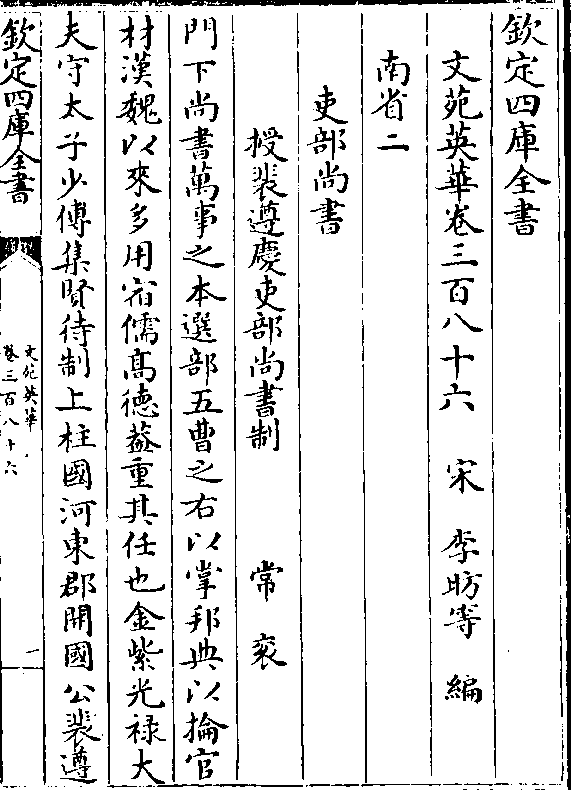 欽定四庫全書
文苑英華卷三百八十六 宋 李昉等 編
南省二
吏部尚書
授裴遵慶吏部尚書制 常袞
門下尚書萬事之本選部五曹之右以掌邦典以掄官
材漢魏以來多用宿儒髙德葢重其任也金紫光禄大
夫守太子少傅集賢待制上柱國河東郡開國公裴遵
欽定四庫全書
文苑英華
卷三百八十六
一